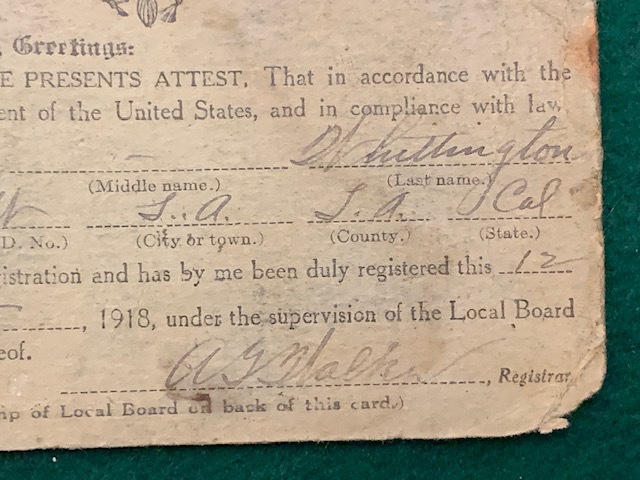 Greetings:
E PRESENTS ATTEST, That in accordance with the
ent of the United States, and in compliance with law,
- Whittington
(Middle name.) (Last name.)
L. A. L. A. Cal
D. No.) (City or town.) (County.) (State.)
istration and has by me been duly registered this 12
, 1918, under the supervision of the Local Board
eof.
Walker, Registrar
mp of Local Board on back of this card.)